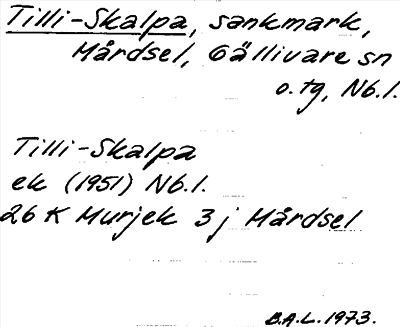 Tilli-Skalpa, sankmark,
Mårdsel, Gällivare sn
o. tg, Nb.l.
Tilli-Skalpa
ek (1951) Nb.l.
26 K Murjek 3 j Mårdsel
B.A.L. 1973.